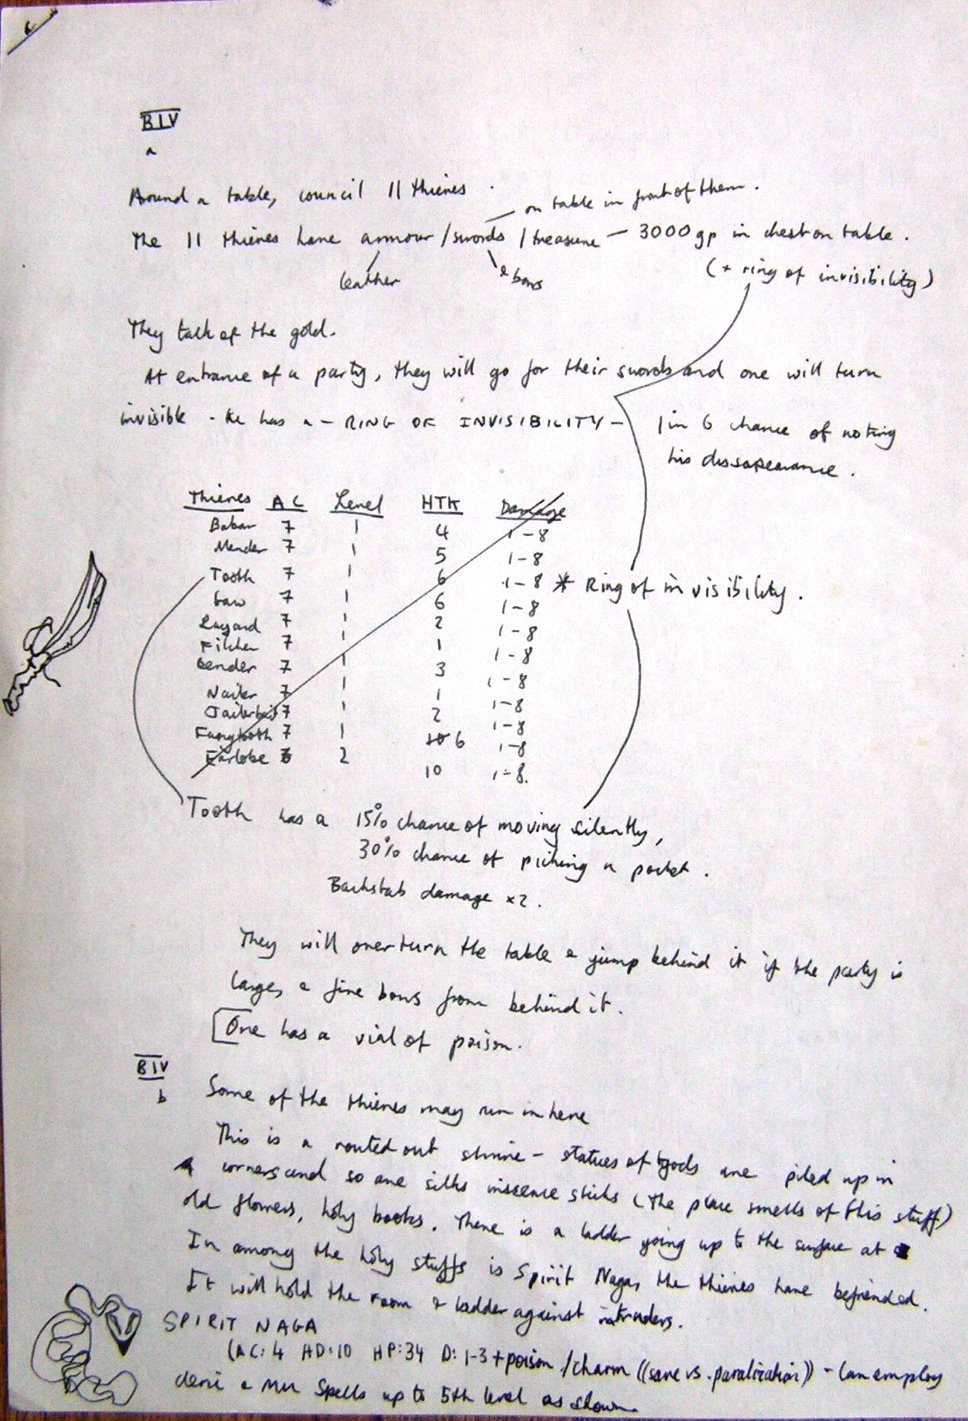 6
BIV
a
Around a table, council 11 thieves.
on table in front of them.
The 11 thieves have armour / swords / treasure — 3000 gp in chest on table.
leather & bows (+ ring of invisibility)
They talk of the gold.
At entrance of a party, they will go for their swords and one will turn
invisible - he has a - RING OF INVISIBILITY - 1 in 6 chance of noting
his dissapearance.
Thieves AC Level HTK Damage
Babar 7 1 4 1-8
Mender 7 1 5 1-8
Tooth 7 1 6 1-8 * Ring of invisibility.
7 1 6 1-8
7 1 2 1-8
Filcher 7 1 1 1-8
Bender 7 1 3 1-8
Nailer 7 1 1 1-8
7 1 2 1-8
Fangtooth 7 1 10 6 1-8
Earlobe 6 2 10 1-8.
Tooth has a 15% chance of moving silently,
30% chance of picking a pocket.
Backstab damage x2.
They will overturn the table & jump behind it if the party is
large, & fire bows from behind it.
One has a vial of poison.
BIV
b
Some of the thieves may run in here
This is a routed out shrine - statues of gods are piled up in
corners and so are silks insence sticks (the place smells of this stuff)
old flowers, holy books. There is a ladder going up to the surface at
In among the holy stuffs is Spirit Naga, the thieves have befriended.
It will hold the room & ladder against intruders.
SPIRIT NAGA
(AC: 4 HD: 10 HP: 34 D: 1-3 + poison / charm ((save vs. paralization)) - Can employ
cleric & MU spells up to 5th level as shown.